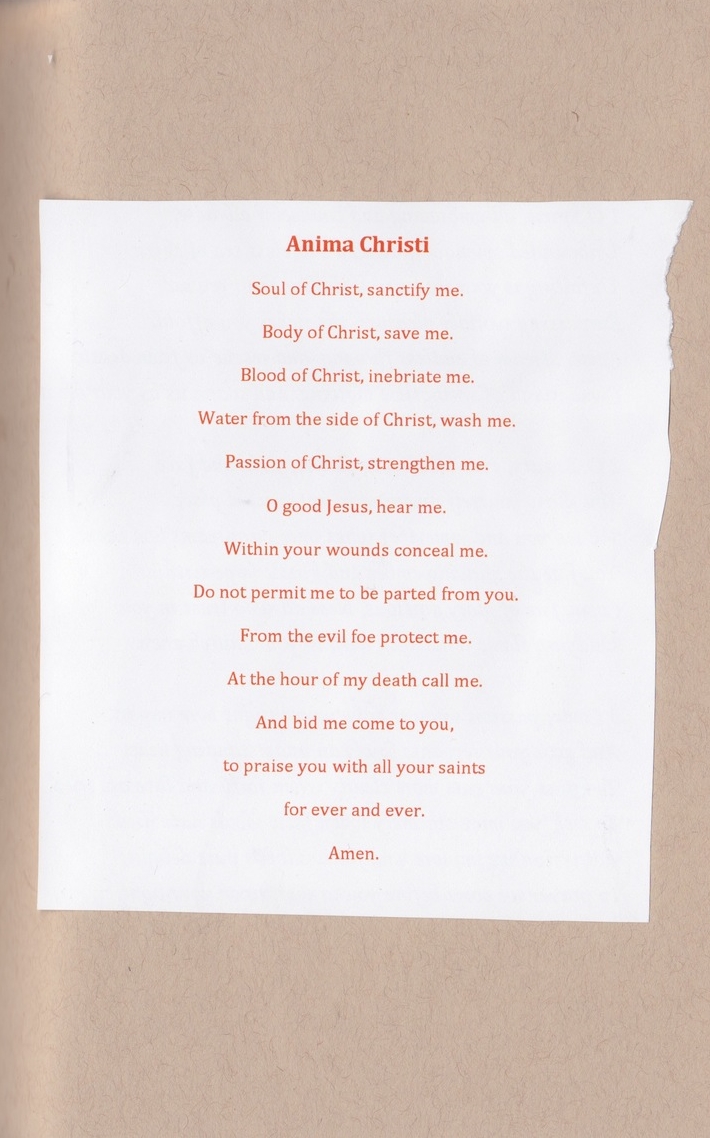 Anima Christi
Soul of Christ, sanctify me.
Body of Christ, save me.
Blood of Christ, inebriate me.
Water from the side of Christ, wash me.
Passion of Christ, strengthen me.
O good Jesus, hear me.
Within your wounds conceal me.
Do not permit me to be parted from you.
From the evil foe protect me.
At the hour of my death call me.
And bid me come to you,
to praise you with all your saints
for ever and ever.
Amen.